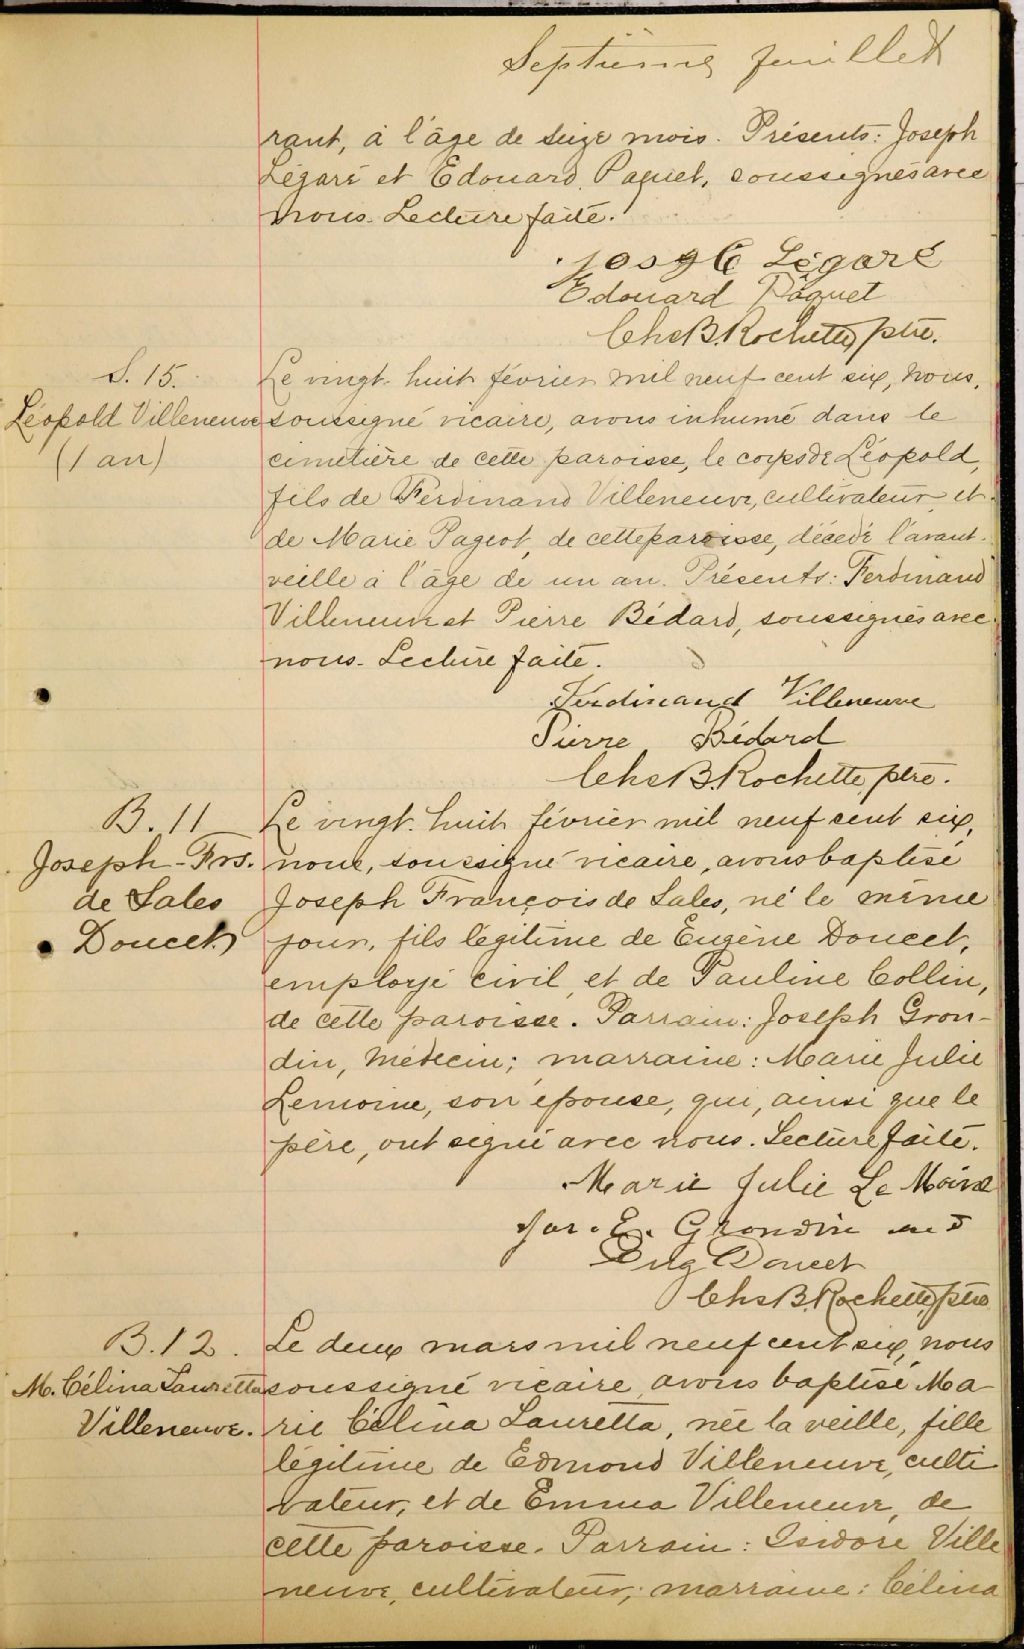 Septième feuillet
rant, à l'âge de seize mois. Présents: Joseph
Légaré et Edouard Paquet, soussignés avec
nous. Lecture faite.
Légaré
Edouard Paquet
Chs B. Rochette, ptre.
S. 15.
Léopold Villeneuve
(1 an)
Le vingt-huit février mil neuf cent six, nous,
soussigné vicaire, avons inhumé dans le
cimetière de cette paroisse, le corps de Léopold,
fils de Ferdinand Villeneuve, cultivateur, et
de Marie Pageot, de cette paroisse, décédé l'avant-
veille à l'âge de un an. Présents: Ferdinand
Villeneuve et Pierre Bédard, soussignés avec
nous. Lecture faite.
Ferdinand Villeneuve
Pierre Bédard
Chs B. Rochette, ptre.
B. 11
Joseph-Frs.
de Sales
Doucet
Le vingt-huit février mil neuf cent six,
nous, soussigné vicaire, avons baptisé
Joseph François de Sales, né le même
jour, fils légitime de Eugène Doucet,
employé civil, et de Pauline Collin,
de cette paroisse. Parrain: Joseph Gron-
din, médecin; marraine: Marie Julie
Lemoine, son épouse, qui, ainsi que le
père, ont signé avec nous. Lecture faite.
Marie Julie Le Moine
Jos. E. Grondin m d
Eug Doucet
Chs B. Rochette, ptre
B. 12.
M. Célina Lauretta
Villeneuve.
Le deux mars mil neuf cent six, nous
soussigné vicaire, avons baptisé Ma-
rie Célina Lauretta, née la veille, fille
légitime de Edmond Villeneuve, culti
vateur, et de Emma Villeneuve, de
cette paroisse. Parrain: Isidore Ville
neuve, cultivateur; marraine: Célina